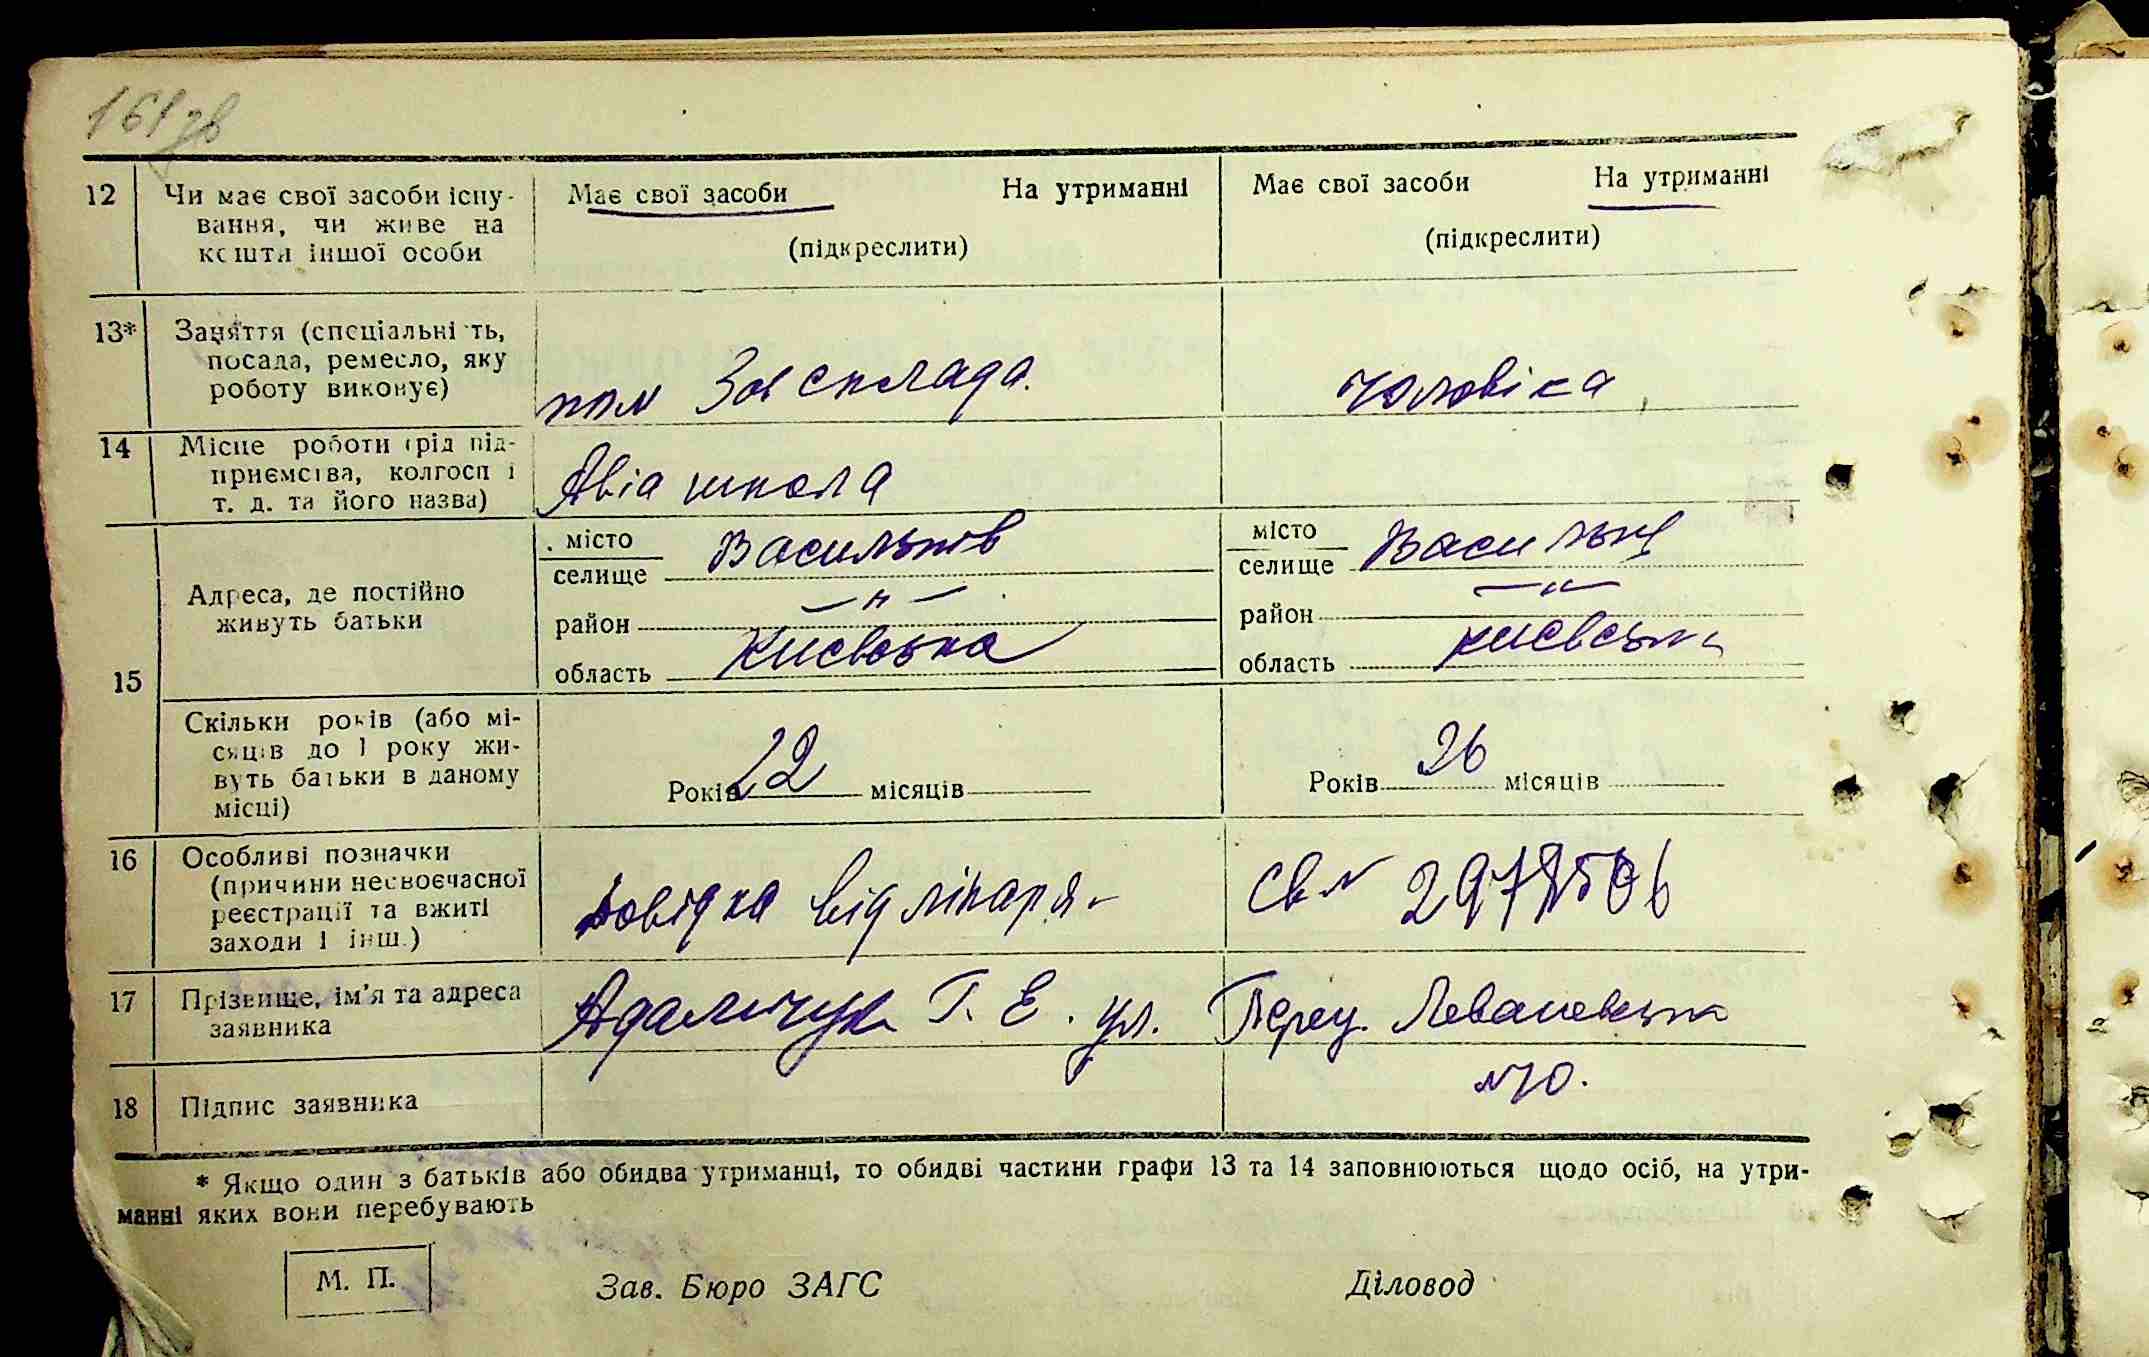 161 зв
12 Чи має свої засоби існу- Має свої засоби На утриманні Має свої засоби На утриманні
вання, чи живе на
кошти іншої особи (підкреслити) (підкреслити)
13* Заняття (спеціальні ть,
посада, ремесло, яку
роботу виконує) пом Зав склада. чоловіка
14 Місце роботи (рід під-
приємства, колгосп і Авіа школа
т. д. та його назва)
15 Адреса, де постійно
живуть батьки
місто Васильків місто
селище селище
район — " — район — " —
область Києвська область Києвська
Скільки років (або мі-
сяців до 1 року жи-
вуть батьки в даному Років 22 місяців Років 26 місяців
місці)
16 Особливі позначки
(причини несвоєчасної Довідка від лікаря- Св №
реєстрації та вжиті
заходи і інш.)
17 Прізвище, ім'я та адреса Адамчук Г. Е. ул. Перец. Леваневська
заявника
№10.
18 Підпис заявника
* Якщо один з батьків або обидва утриманці, то обидві частини графи 13 та 14 заповнюються щодо осіб, на утри-
манні яких вони перебувають
М. П. Зав. Бюро ЗАГС Діловод